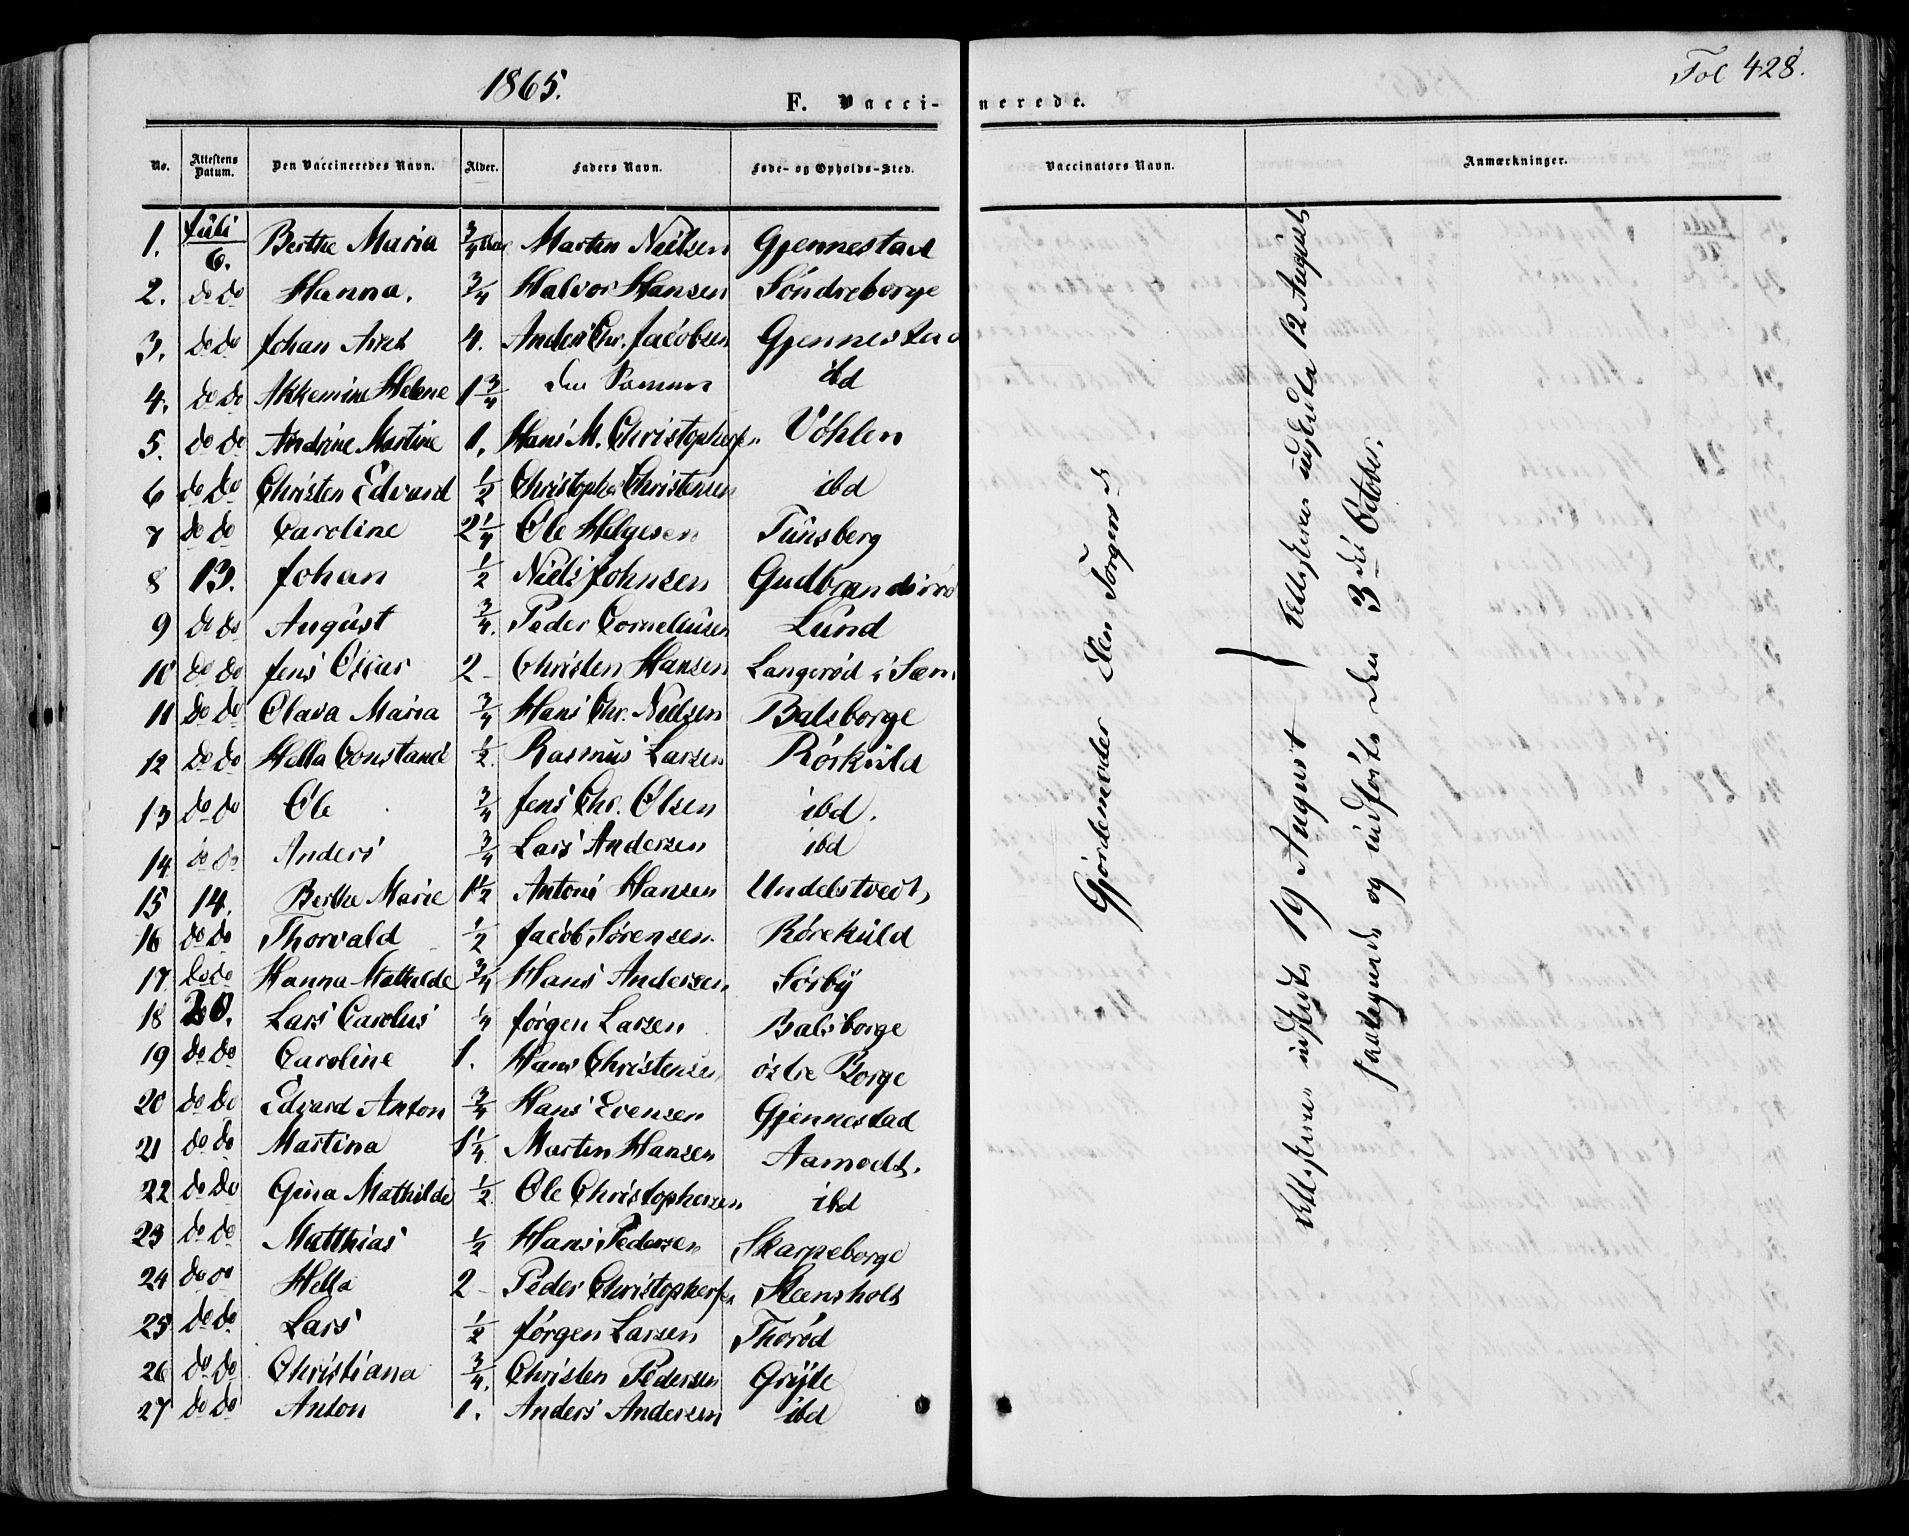 1865.
Fol 428.
F. Vaccinerede.
No. Attestens Datum. Den Vaccineredes Navn. Alder. Faders Navn. Føde- og Opholds-Sted. Vaccinators Navn. Anmærkninger.
1. Juli 6. Berthe Maria 3/4 Aar Martin Nielsen Gjennestad
2. do do Hanna. 3/4 Halvor Hansen Söndreborge
3. do do Johan Axel 4. Anders Chr. Jacobsen Gjennestad
4. do do Helene 1 3/4 den Samme ibd
5. do do Andrine Martine 1. Hans M. Christophersen Vöhlen
6 do do Christen Edvard 1/2 Christopher Christensen ibd
7 do do Caroline 2 1/4 Ole Helgesen Tünsberg
8 13. Johan 1/2 Niels Johnsen Gudbrandsrød
9 do do August 3/4. Peder Corneliusen Lund
10 do do Jens Oscar 2 - Christen Hansen Langerød i Sem
11 do do Olava Maria 3/4 Hans Chr. Nielsen Balsborge
12 do do Hella Constance 1/2. Rasmus Larsen Rörküld
13 do do Ole 3/4 Jens Chr. Olsen ibd.
14 do do Anders 3/4 Lars Andersen ibd
15 14. Berthe Marie 1 1/2 Antoni Hansen Undelstvedt
16 do do Thorvald 1/2 Jacob Sørensen. Röreküld
17 do do Hanna Mathilde 3/4 Hans Andersen Sörbÿ
18 20. Lars Carolus 1/4 Jørgen Larsen Balsborge
19 do do Caroline 1. Hans Christensen østre Borge
20 do do Edvard Anton 3/4 Hans Evensen Gjennestad
21 do do Martina 1 1/4 Martin Hansen Aamodt.
22 do do Gina Mathilde 1/2 Ole Christophersen ibd
23 do do Matthias 1/2 Hans Pedersen Skarpeborge
24 do do Hella 2 - Peder Christophersen Steensholt
25 do do Lars 1/2 Jörgen Larsen Thoröd
26 do do Christiana 3/4. Christen Pedersen Grÿte
27 do do Anton 1. Anders Andersen ibd
Gjordemoder Elen
indført 19 August } udstedta 12 August
og indført den 3die October.